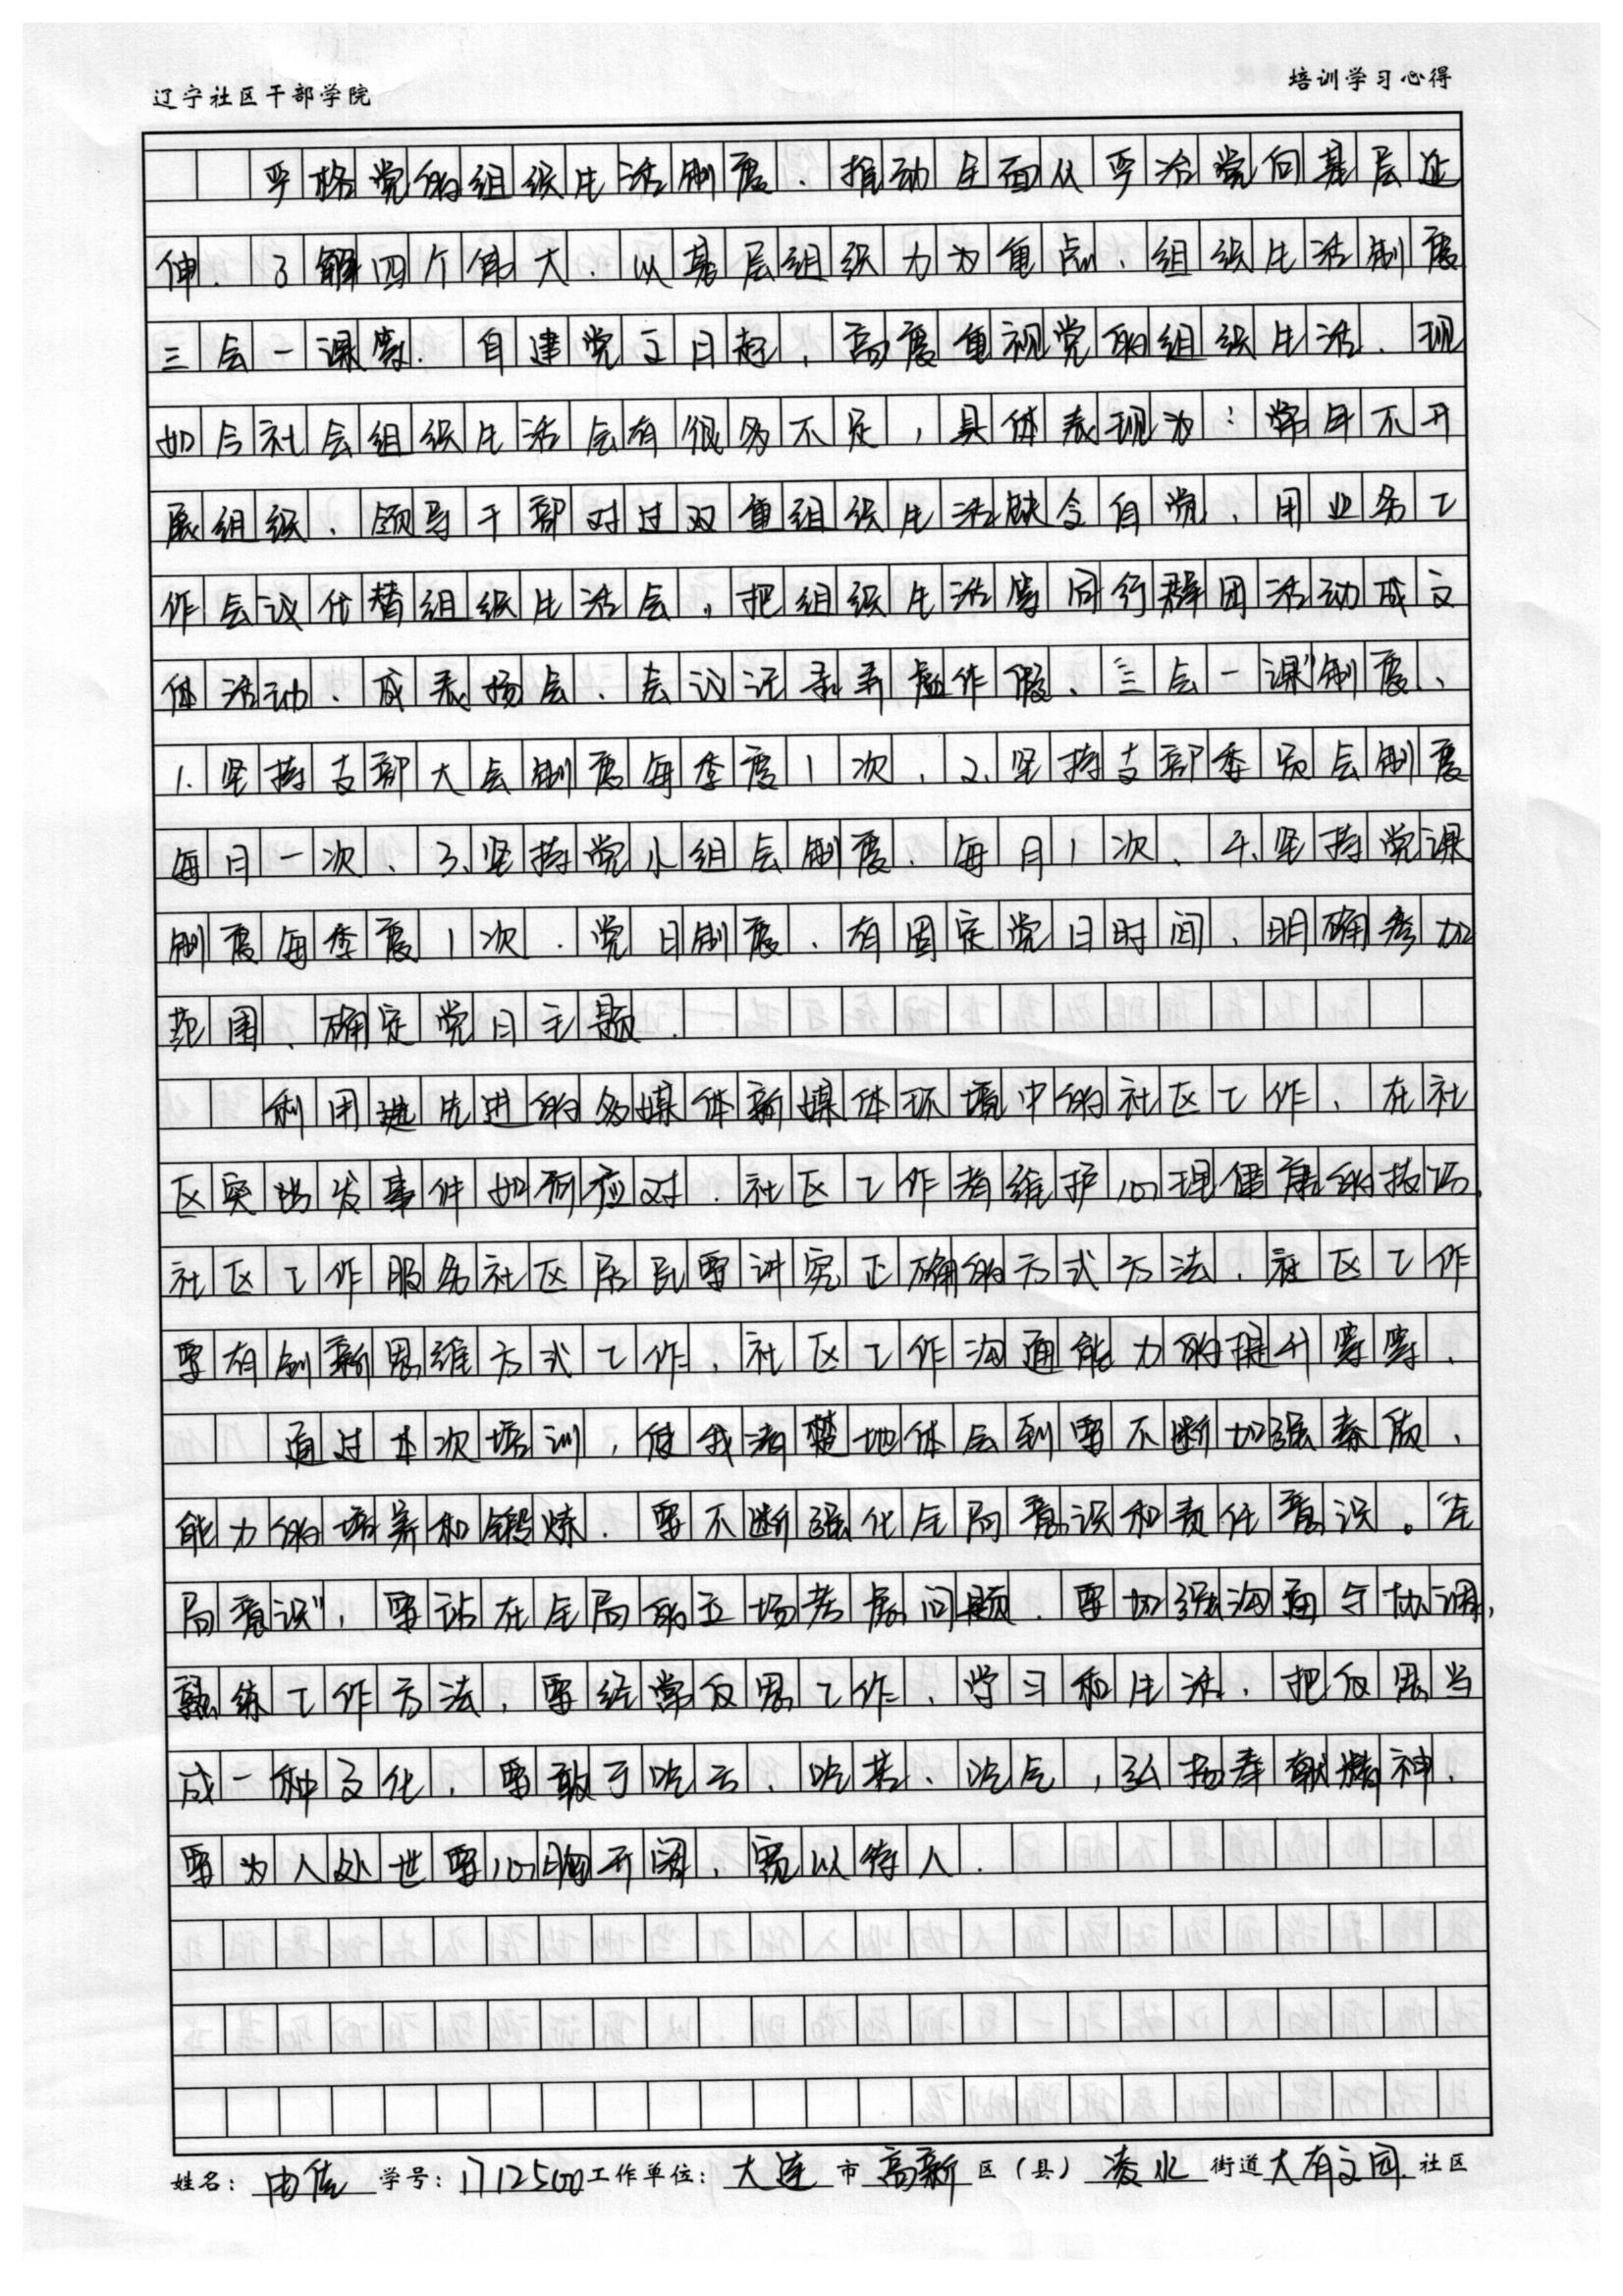 辽宁社区干部学院
培训学习心得
严格党的组织生活制度、推动全面从严治党向基层延
伸、了解四个伟大、以基层组织力为重点、组织生活制度
三会一课等、自建党之日起、高度重视党的组织生活、现
如今社会组织生活会有很多不足，具体表现为：常年不开
展组织、领导干部对过双重组织生活缺令自觉、用业务工
作会议代替组织生活会，把组织生活等同行群团活动或文
体活动、或表扬会、会议记录弄虚作假、三会一课"制度、
1.坚持支部大会制度每季度1次、2、坚持支部委员会制度
每月一次、3、坚持党小组会制度、每月1次、4、坚持党课
制度每季度1次．党日制度、有固定党日时间、明确参加
范围、确定党日主题．
利用选先进的多媒体新媒体环境中的社区工作、在社
区突出发事件如何应对．社区工作者维护心理健康的技巧、
社区工作服务社区居民要讲究正确的方式方法．社区工作
要有创新思维方式工作、社区工作沟通能力的提升等等．
通过本次培训，使我清楚地体会到要不断加强素质、
能力的培养和锻炼．要不断强化全局意识和责任意识。"全
局意识"，要站在全局的立场考虑问题．要加强沟通与协调，
熟练工作方法，要经常反思工作、学习和生活，把反思当
成一种文化，要敢于吃亏、吃苦、吃气，弘扬奉献精神．
要为人处世要心胸开阔，宽以待人．
姓名：由佳 学号：1712500 工作单位：大连市高新区（县）凌水街道大有文园社区